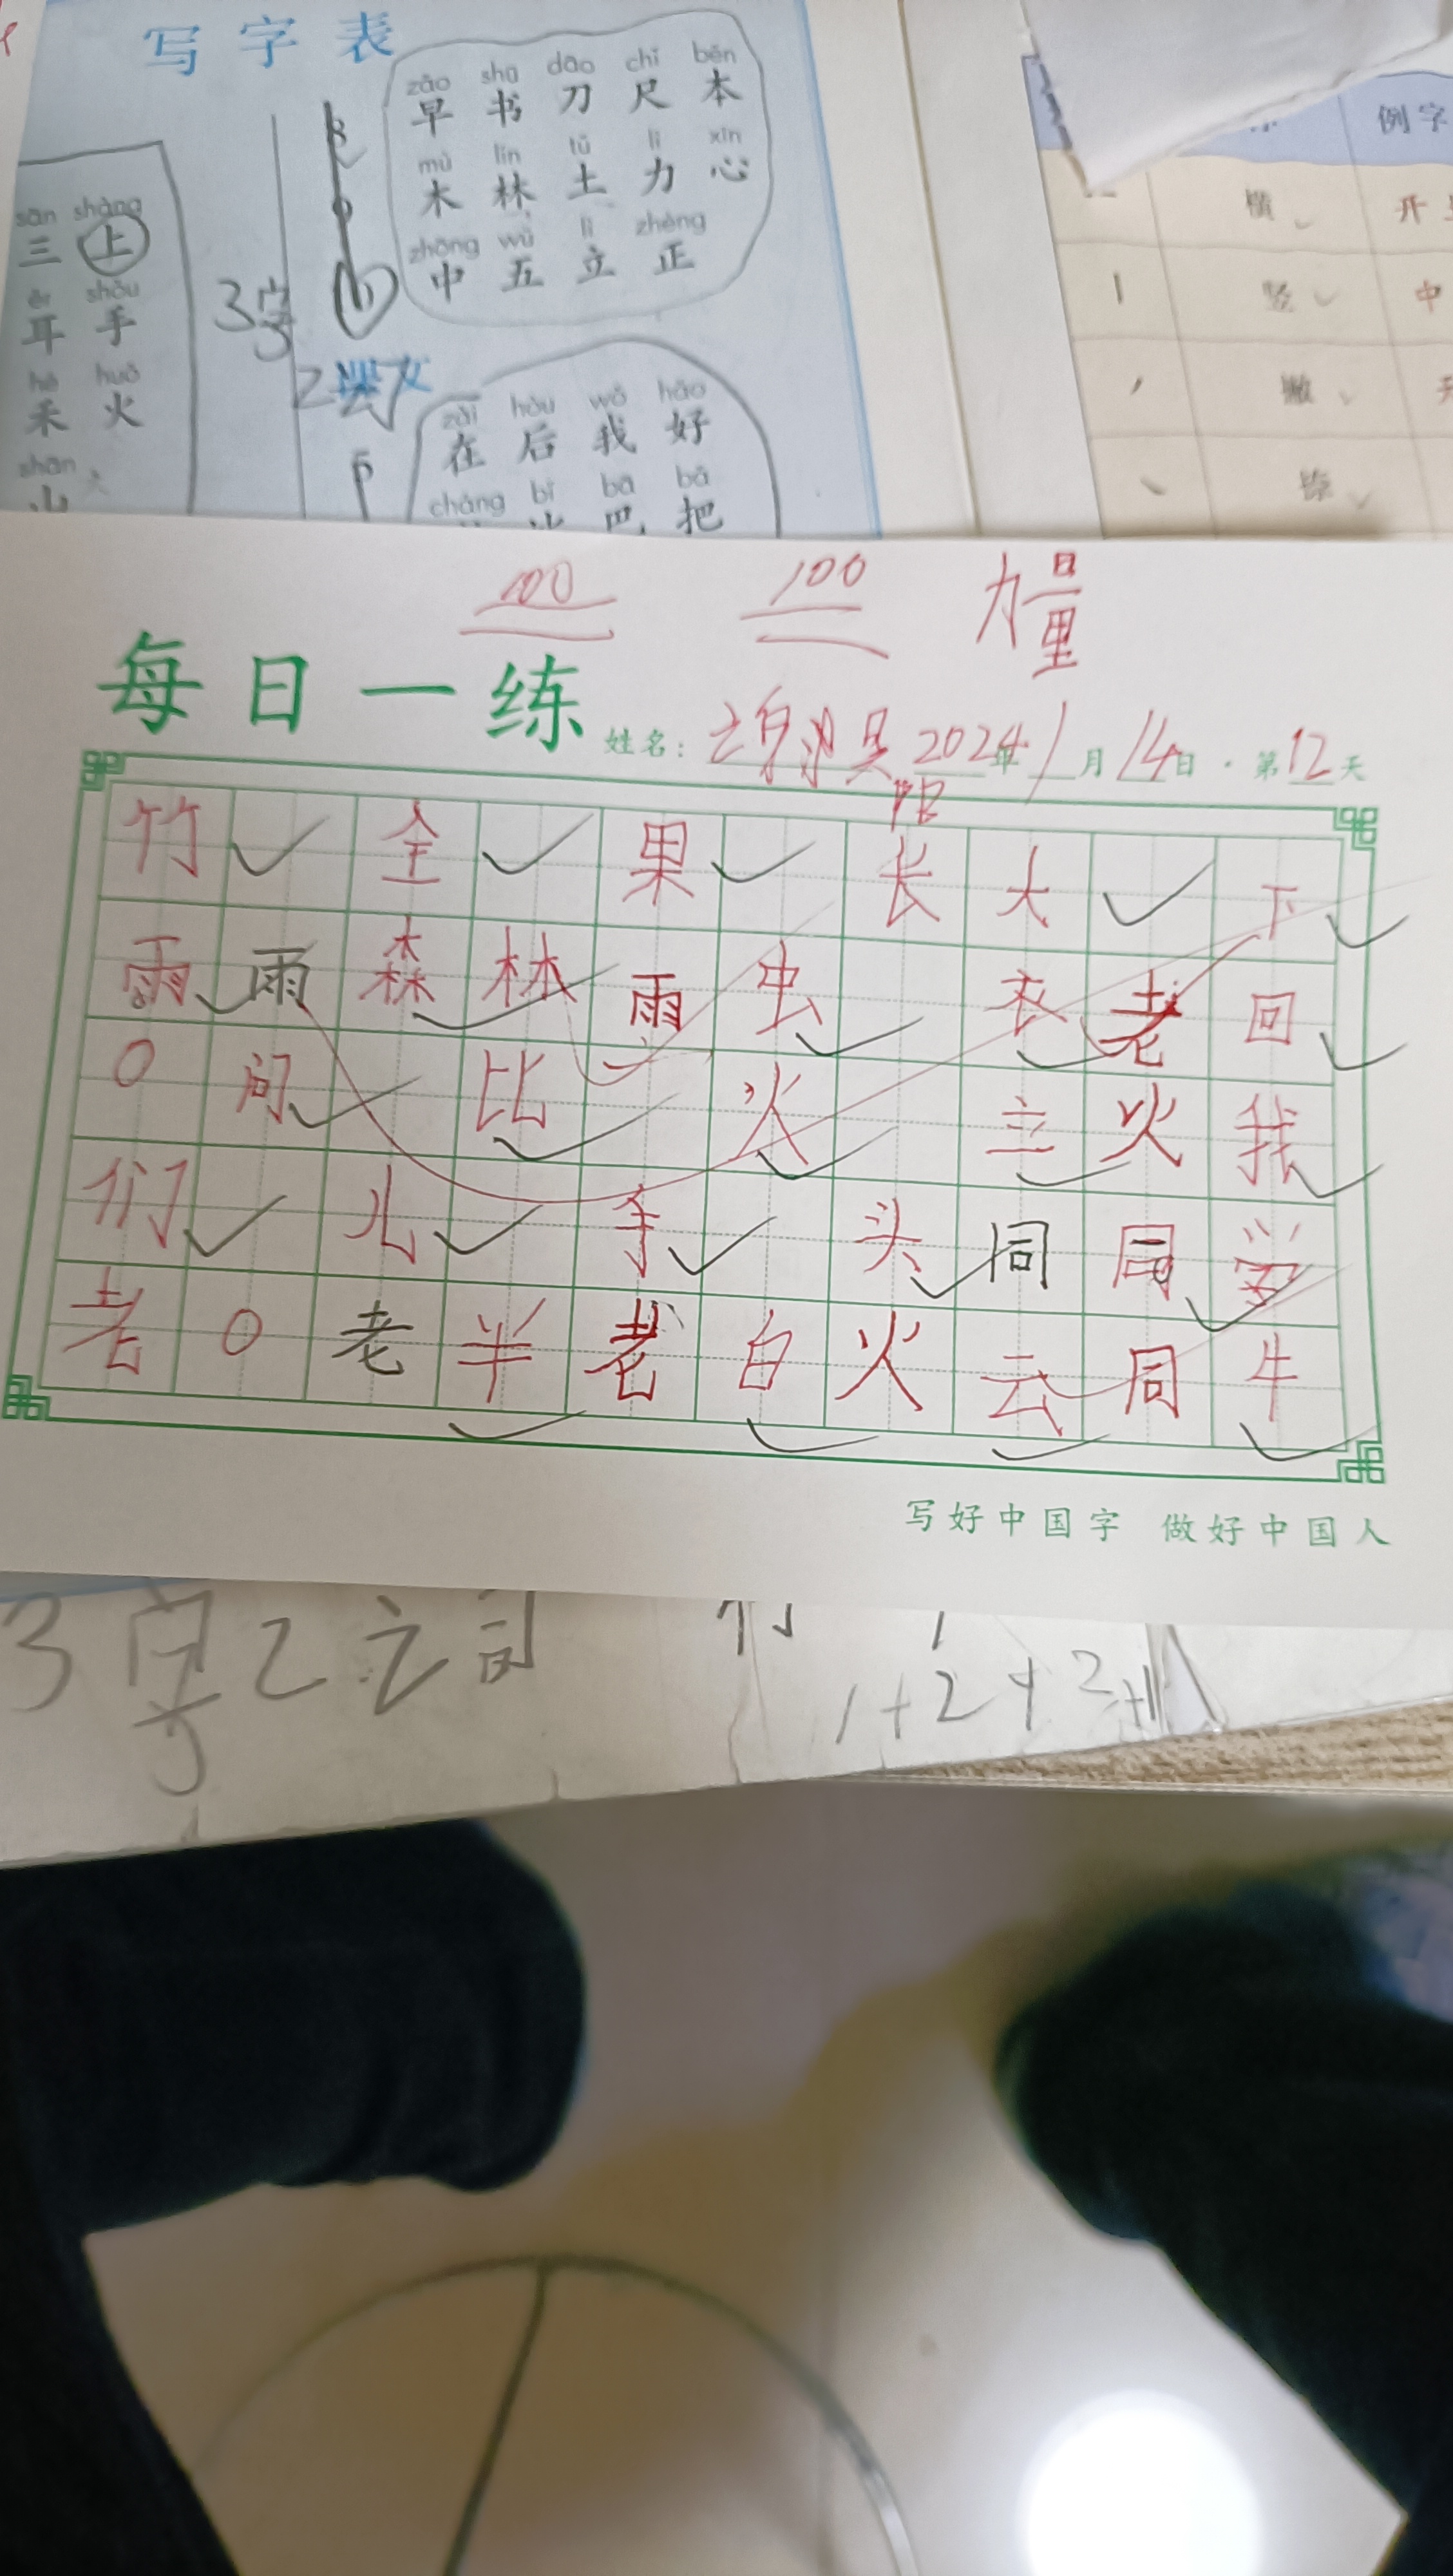 写字表
zǎo shū dāo chǐ běn
早 书 刀 尺 本
mù lín tǔ lì xīn
木 林 土 力 心
zhōng wǔ lì zhèng
中 五 立 正
sān shàng
三 上
ěr shǒu
耳 手
hé huǒ
禾 火
shān
山
3字
zài hòu wǒ hǎo
在 后 我 好
cháng bǐ bā bǎ
比 巴 把
例字
横 开
丨 竖 中
丿 撇
捺
100 100 力量
每日一练
姓名: 2024年1月14日·第12天
竹 全 果 长 大 下
雨 雨 森 林 雨 虫 衣 老 回
0 问 比 火 立 火 我
们 儿 手 头 同 同
老 0 老 半 老 白 火 云 同 牛
写好中国字 做好中国人
3 字 2
1+2+3+